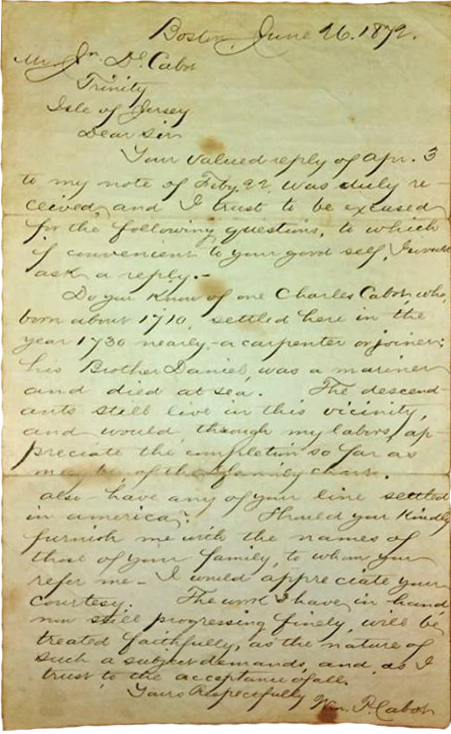 Boston, June 26. 1872.
Mr. Jn. D. Cabot
Trinity
Isle of Jersey
Dear Sir
Your valued reply of Apr. 3
to my note of Feby. 22, was duly re-
ceived, and I trust to be excused
for the following questions, to which
if convenient to your good self, I would
ask a reply.-
Do you know of one Charles Cabot who,
born about 1710, settled here in the
year 1730 nearly, - a carpenter or joiner;
his Brother Daniel, was a mariner
and died at sea. The descend-
ants still live in this vicinity,
and would, through my labors, ap-
preciate the completion so far as
may be of the family chain.
also have any of your line settled
in america? Should you kindly
furnish me with the names of
that of your family, to whom you
refer me - I would appreciate your
courtesy. The work I have in hand,
now still progressing finely, will be
treated faithfully, as the nature of
such a subject demands, and, as I
trust to the acceptance of all.
Yours Respectfully Wm. P. Cabot